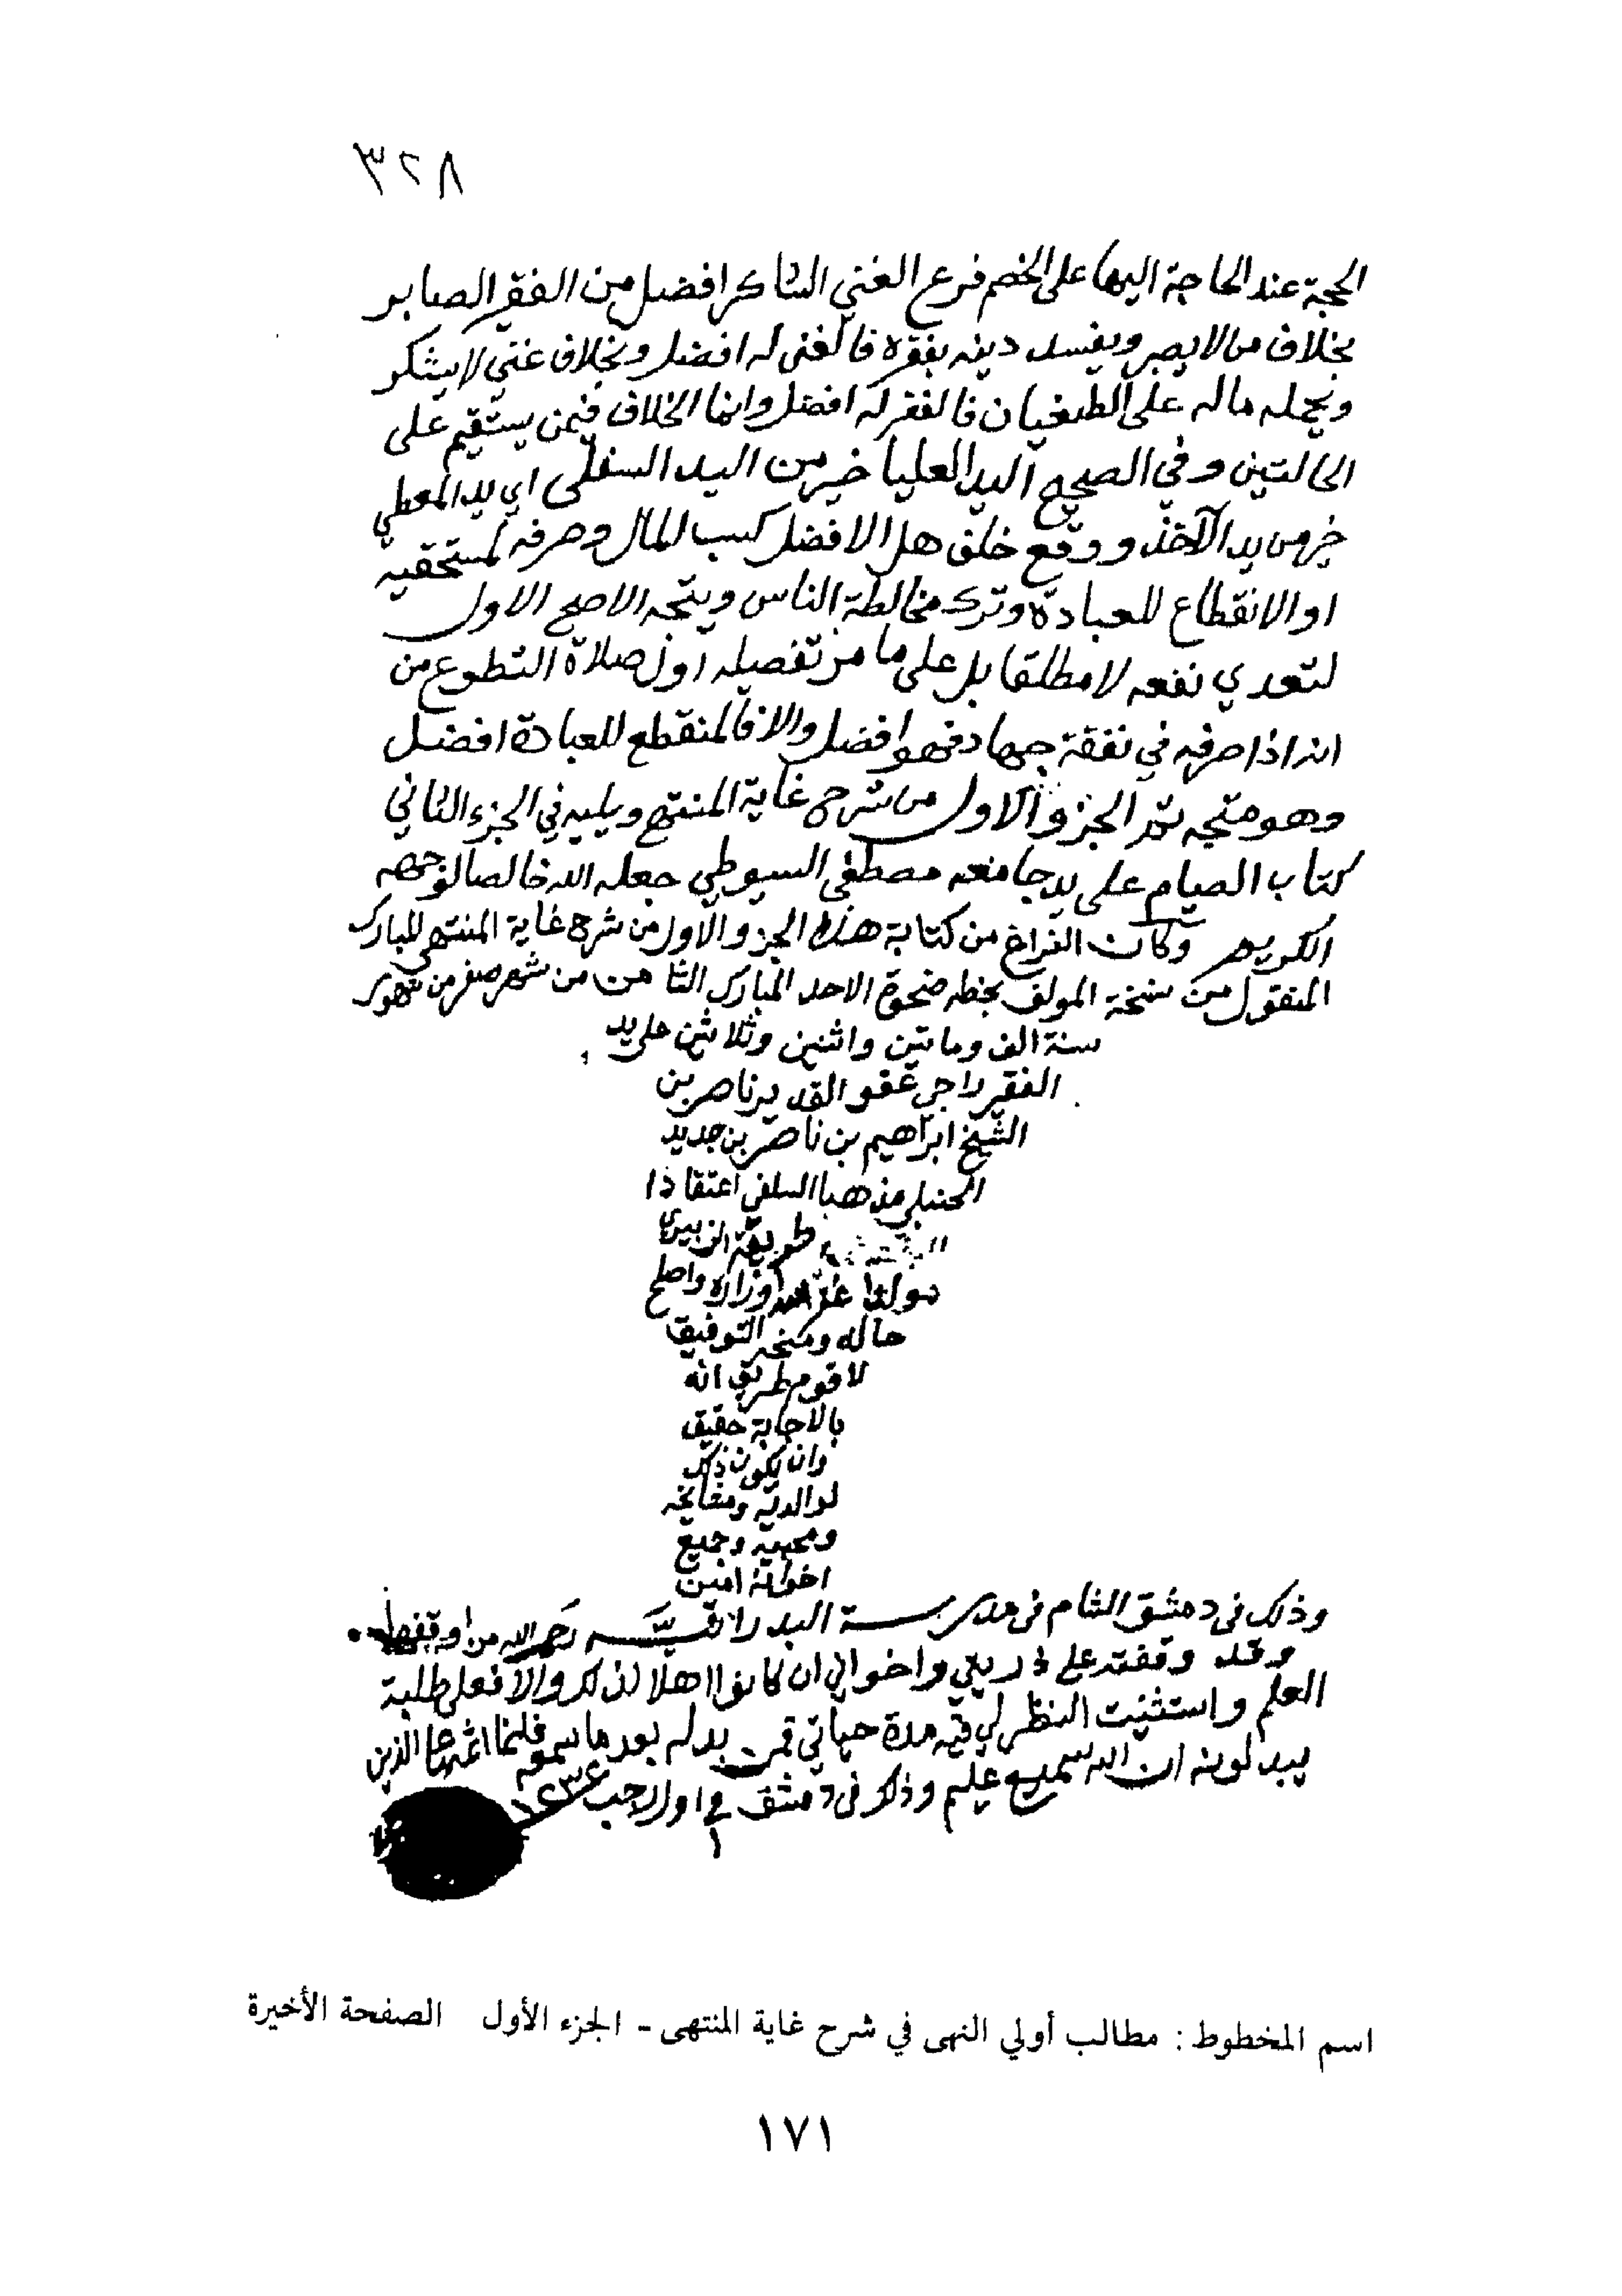 ٣٢٨
الحجة عند الحاجة اليها على الخصم فرع الغني الشاكر افضل من الفقير الصابر
بخلاف من لا يصبر ويفسد دينه بفقره فالغنى له افضل وبخلاف غني لا يشكر
ويحمله ماله على الطغيان فالفقر له افضل وانما الخلاف فيمن يستقيم على
الحالتين وفي الصحيح اليد العليا خير من اليد السفلى اي يد المعطي
خير من يد الآخذ ووقع خلف هل الافضل كسب المال وصرفه لمستحقيه
او الانقطاع للعبادة وترك مخالطة الناس ويتجه الاصح الاول
لتعدي نفعه لا مطلقا بل على ما مر تفصيله اول صلاة التطوع من
انه اذا صرفه في نفقة جهاد فهو افضل والا فالمنقطع للعبادة افضل
وهو متجه تم الجزؤ الاول من شرح غاية المنتهى ويليه في الجزء الثاني
كتاب الصيام على يد جامعه مصطفى السيوطي جعله الله خالصا لوجهه
الكريم وكان الفراغ من كتابة هذا الجزو الاول من شرح غاية المنتهى المبارك
المنقول من نسخة المولف بخطه ضحوة الاحد المبارك الثامن من شهر صفر من شهور
سنة الف ومايتين واثنين وثلاثين على يد
الفقير راجي عفو القدير ناصر بن
الشيخ ابراهيم بن ناصر بن جديد
الحنبلي مذهبا السلفي اعتقادا
طريقة الزبيري
مولدا غفر الله اوزاره واصلح
حاله ومنحه التوفيق
لاقوم طريق انه
بالاجابة حقيق
وان يكون ذلك
لوالديه ومشايخه
ومحبيه وجميع
اخوانه امين
وذلك في دمشق الشام في مدرسة البدرائية رحم الله من اوقفها
وقد وقفته على ذريتي واخواني ان كانوا اهلا لذلك والا فعلى طلبة
العلم واستثنيت النظر لي فيه مدة حياتي فمن بدله بعد ما سمعه فانما اثمه على الذين
يبدلونه ان الله سميع عليم وذلك في دمشق في ١ اول رجب ١٢٣٤
اسم المخطوط : مطالب أولي النهى في شرح غاية المنتهى - الجزء الأول الصفحة الأخيرة
١٧١